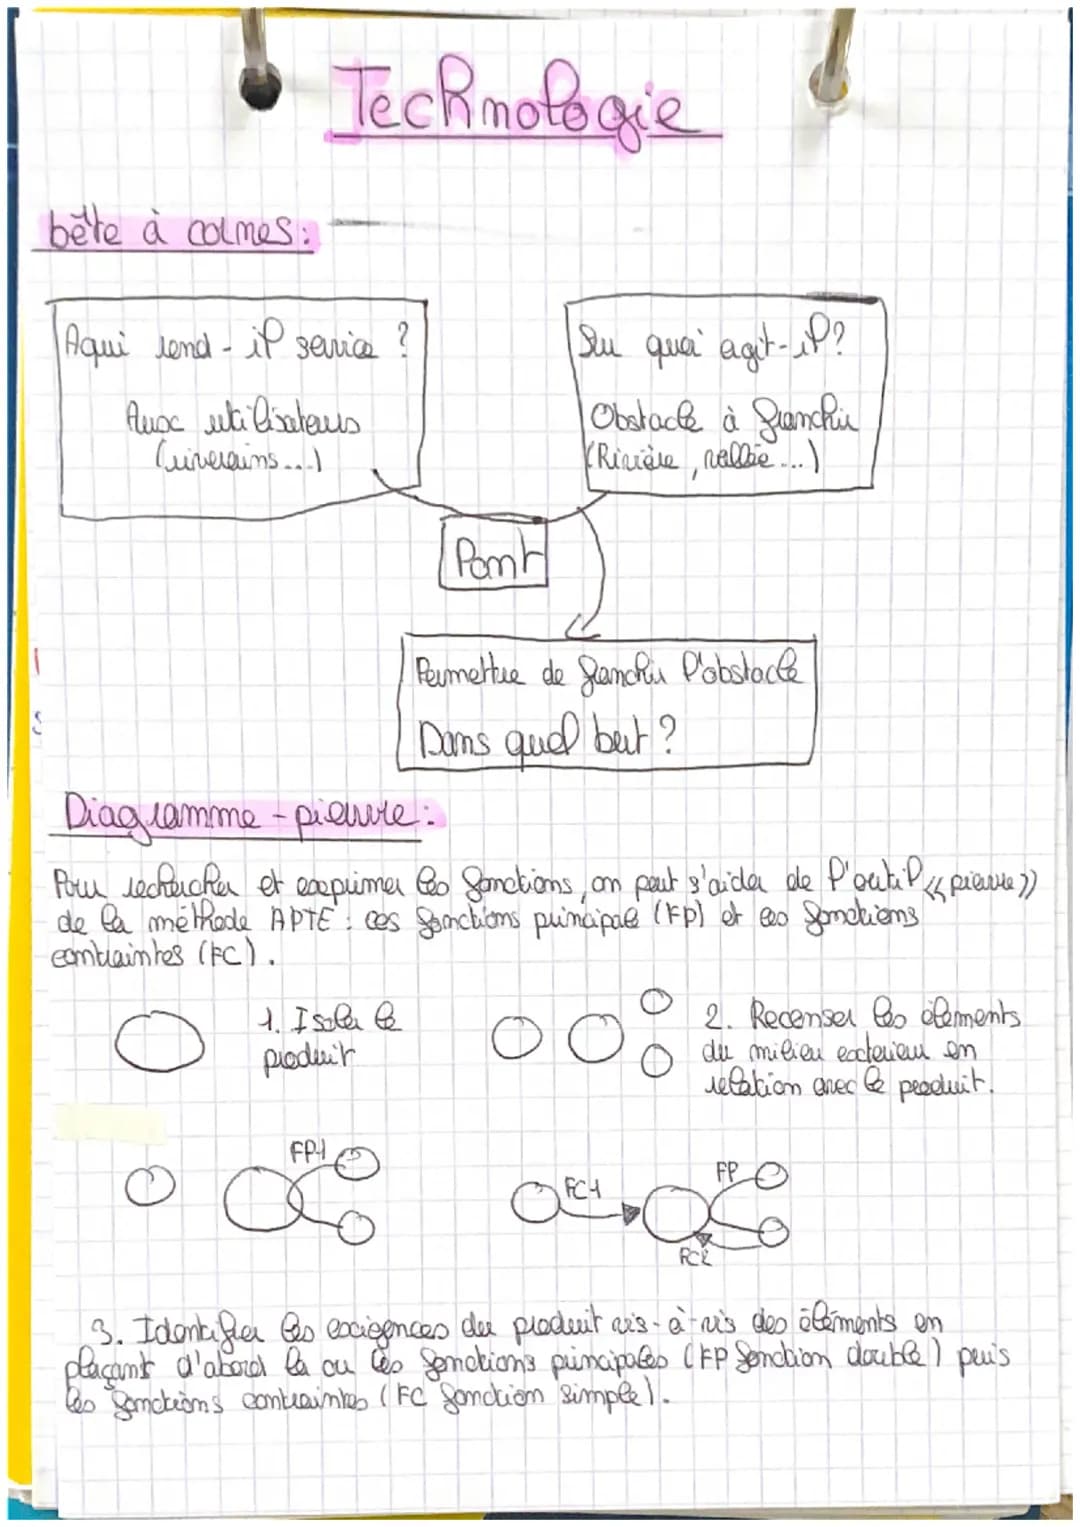 Technologie
bête à cornes :
Aqui rend-il service ?
Aux utilisateurs
(riverains...)
Sur quoi agit-il ?
Obstacle à franchir
(Rivière, vallée...)
Pont
Permettre de franchir l'obstacle
Dans quel but ?
Diagramme - pieuvre :
Pour rechercher et exprimer les fonctions, on peut s'aider de l'outil « pieuvre »
de la méthode APTE : ces fonctions principale (FP) et les fonctions
contraintes (FC).
1. Isoler le
produit
2. Recenser les éléments
du milieu exterieur en
relation avec le produit.
FP1
FC1
FP
FC2
3. Identifier les exigences du produit vis-à-vis des éléments en
plaçant d'abord la ou les fonctions principales (FP fonction double) puis
les fonctions contraintes (FC fonction simple).